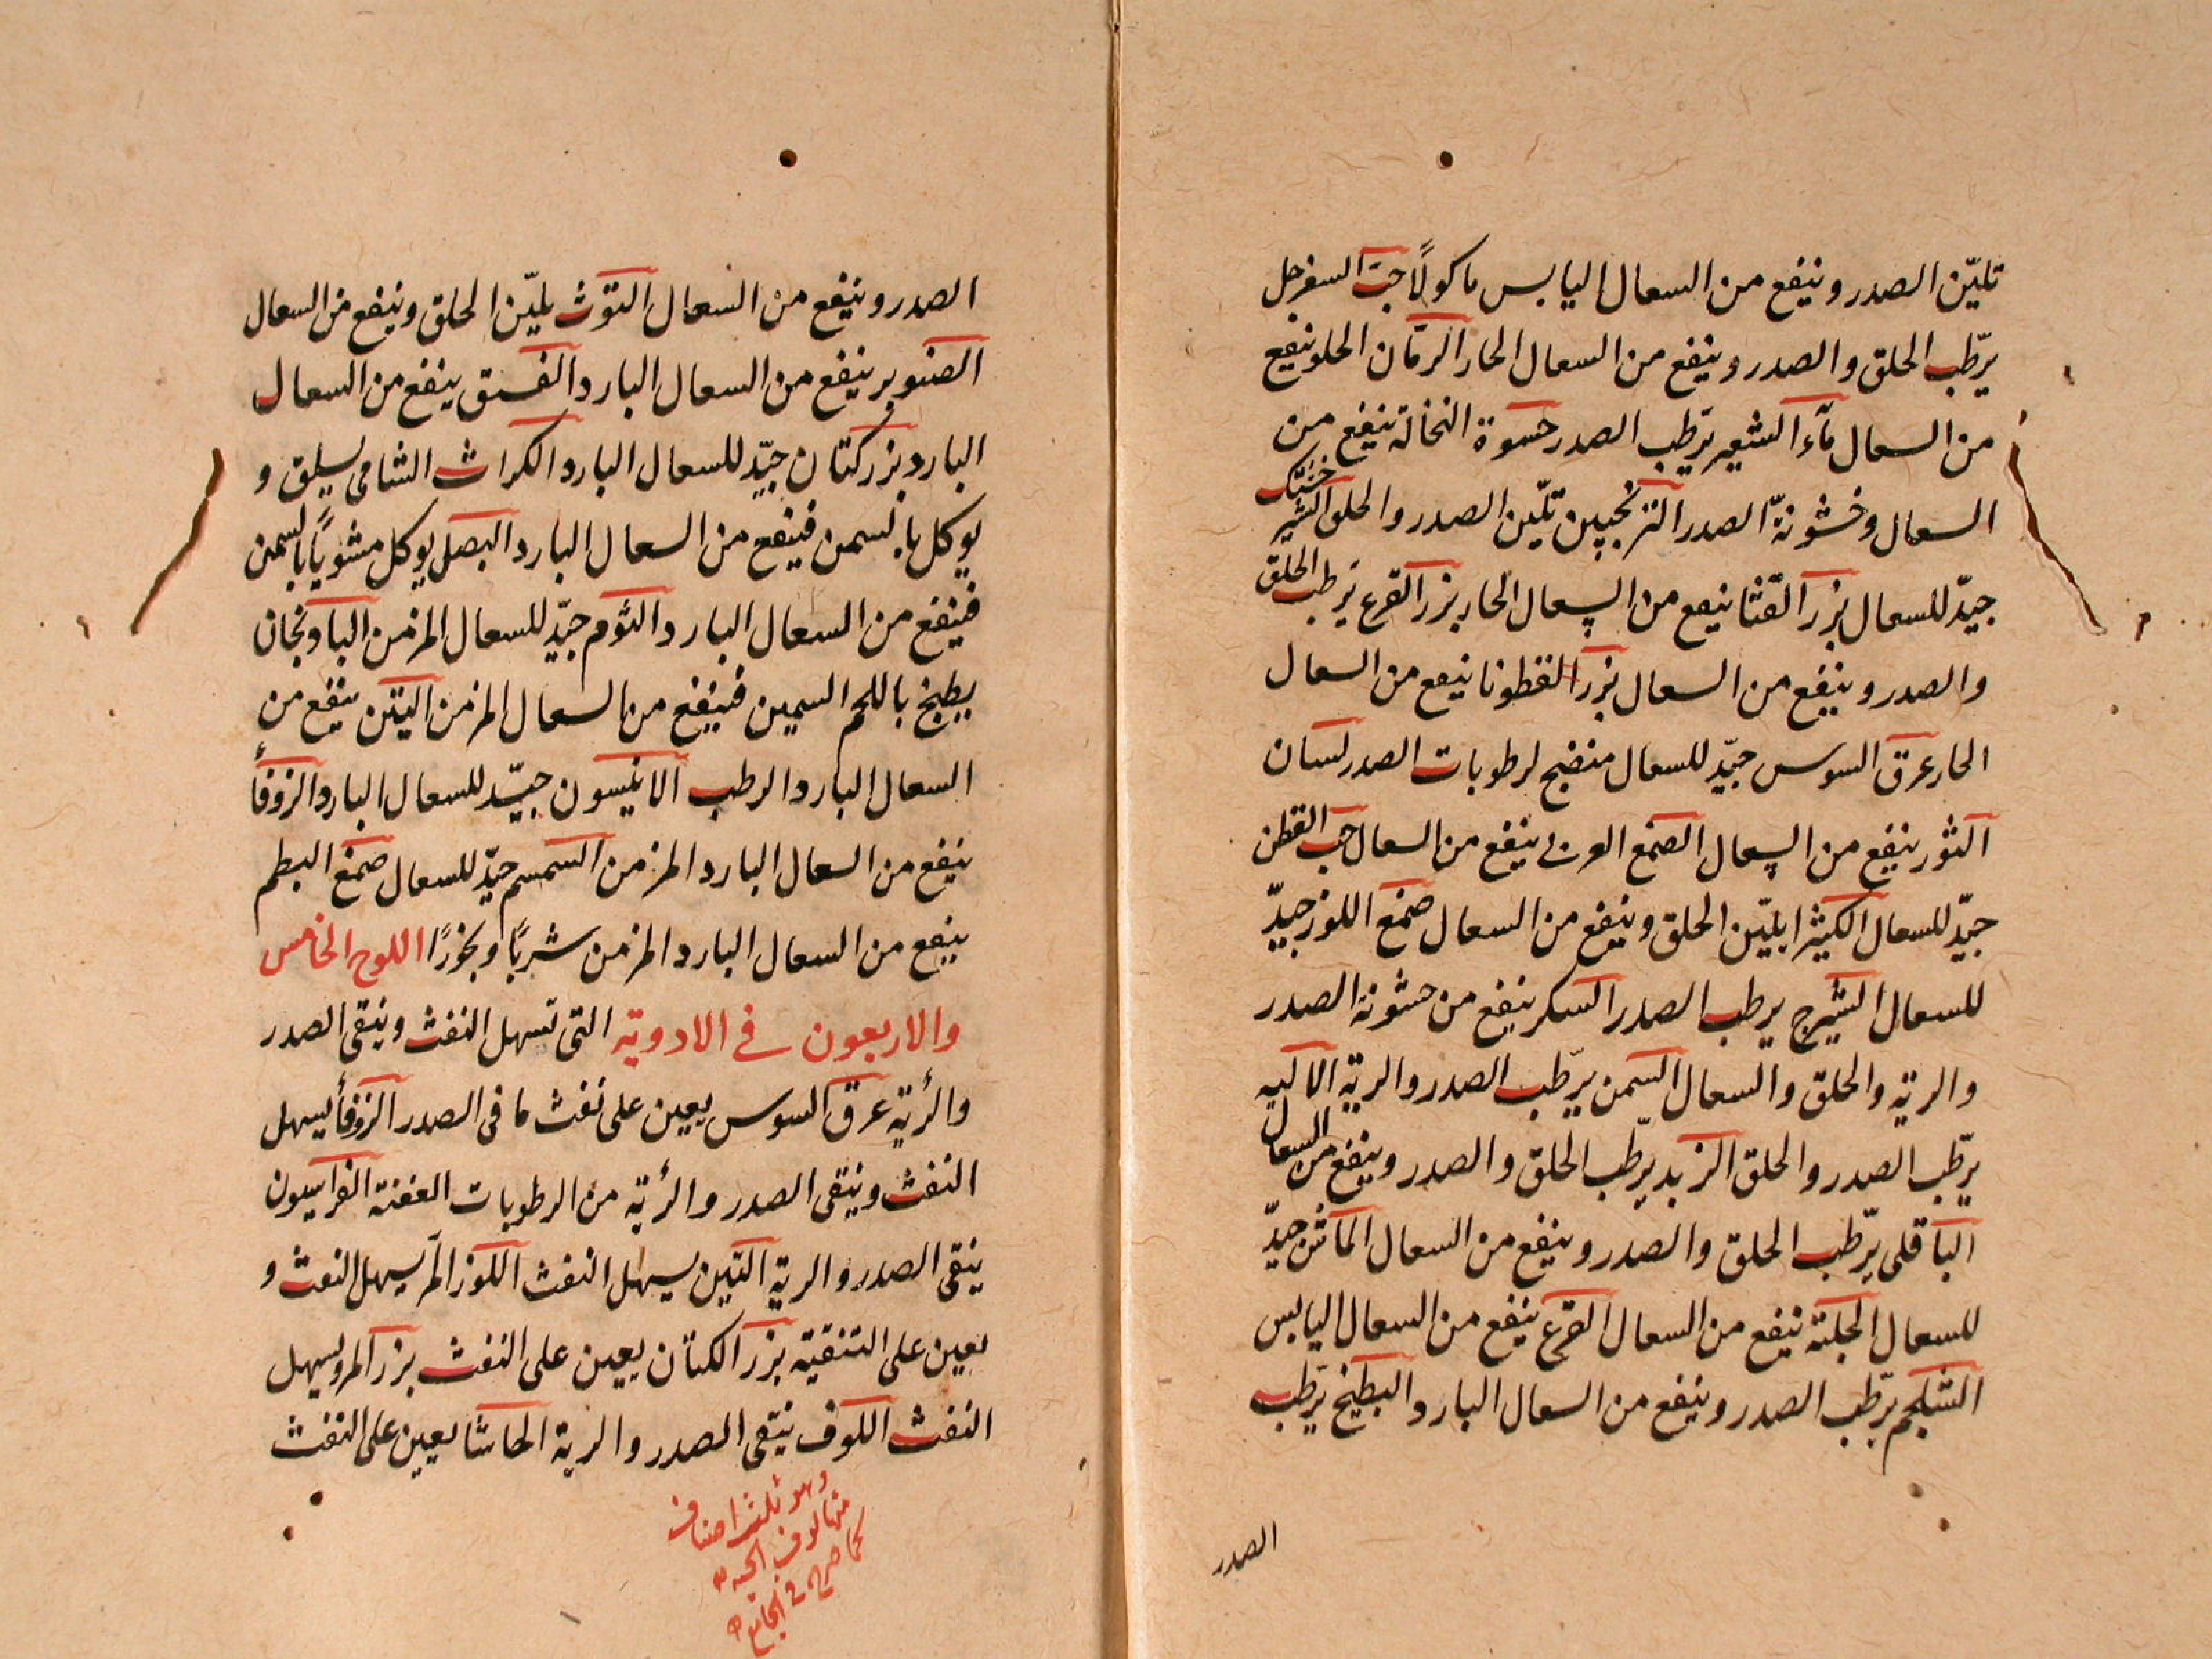 تليّن الصدر وينفع من السعال اليابس ماكولًا حبّ السفرجل
يرّطب الحلق والصدر وينفع من السعال الحار الرمّان الحلو ينفع
من السعال مآء الشعير يرّطب الصدر حسوة النخالة تنفع من
السعال وخشونة الصدر الترنجبين تليّن الصدر والحلق الشير خشك
جيّد للسعال بزر القثا ينفع من السعال الحار بزر القرع يرّطب الحلق
والصدر وينفع من السعال بزر القطونا ينفع من السعال
الحار عرق السوس جيّد للسعال منضج لرطوبات الصدر لسان
الثور ينفع من السعال الصمغ العربي ينفع من السعال حب القطن
جيّد للسعال الكثيرا يليّن الحلق وينفع من السعال صمغ اللوز جيدّ
للسعال الشيرج يرطب الصدر السكر ينفع من خشونة الصدر
والرية والحلق والسعال السمن يرّطب الصدر والرية الالية
يرّطب الصدر والحلق الزبد يرّطب الحلق والصدر وينفع من السعال
الباقلى يرّطب الحلق والصدر وينفع من السعال الماش جيدّ
للسعال الحلبة تنفع من السعال القرع ينفع من السعال اليابس
الشلجم يرّطب الصدر وينفع من السعال البارد البطيخ يرّطب
الصدر
الصدر وينفع من السعال التوث يليّن الحلق وينفع من السعال
الصنوبر ينفع من السعال البارد الفستق ينفع من السعال
البارد بزر كتان جيّد للسعال البارد الكراث الشامى يسلق و
يوكل بالسمن فينفع من السعال البارد البصل يوكل مشويًا بالسمن
فينفع من السعال البارد الثوم جيّد للسعال المزمن الباذنجان
يطبخ باللحم السمين فينفع من السعال المزمن التين ينفع من
السعال البارد الرطب الانيسون جيّد للسعال البارد الزوفأ
ينفع من السعال البارد المزمن السمسم جيّد للسعال صمغ البطم
ينفع من السعال البارد المزمن شربًا وبخورًا اللوح الخامس
والاربعون في الادوية التى تسهل النفث وينقى الصدر
والرئية عرق السوس يعين على نفث ما فى الصدر الزوفأ يسهل
النفث وينقى الصدر والرئية من الرطوبات العفنة الفراسيون
ينقى الصدر والرية التين يسهل النفث اللوز المر يسهل النفث و
يعين على التنقية بزر الكتان يعين على النفث بزر المرو يسهل
النفث اللوف ينقى الصدر والرية الحاشا يعين على النفث
وهو ثلث اصناف
منها لوف الحية
كما صرح فى الجامع